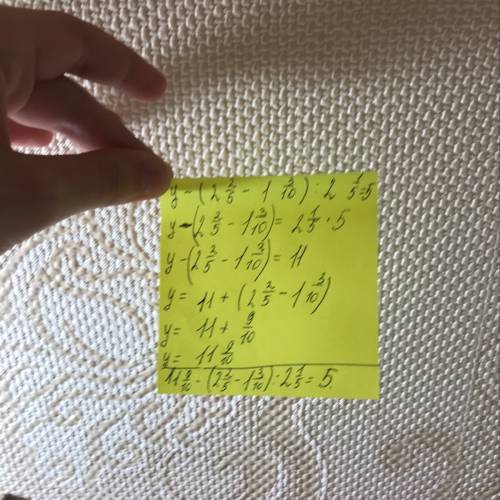 y - (2 2/5 - 1 3/10) : 2 1/5 = 5
y - (2 2/5 - 1 3/10) = 2 1/5 · 5
y - (2 2/5 - 1 3/10) = 11
y = 11 + (2 2/5 - 1 3/10)
y = 11 + 9/10
y = 11 9/10
11 9/10 - (2 2/5 - 1 3/10) : 2 1/5 = 5